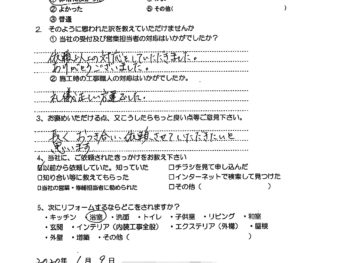 ② よかった ⑤ その他(
③ 普通
2. そのように思われた訳を教えていただけませんか
① 当社の受付及び営業担当者の対応はいかがでしたか?
依頼以上の対応をしていただきました。
ありがとうございました。
② 施工時の工事職人の対応はいかがでしたか?
礼儀正しい方達でした。
3、お褒めいただける点、又こうしたらもっと良い点等ご意見下さい。
長く おつき合い、依頼させていただきたいと
思います
4、当社に、ご依頼されたきっかけをお教え下さい
以前から依頼していた。知っていた □チラシを見て申し込んだ
□知り合い等に教えてもらった □インターネットで検索して見つけた
□当社の営業・専門担当者に勧められた □その他(
5、次にリフォームするならどこをされますか?
・キッチン ・浴室 ・洗面 ・トイレ ・子供室 ・リビング ・和室
・玄関 ・インテリア(内装工事全般) ・エクステリア(外構) ・屋根
・外壁 ・増築 ・その他(
2020年 1月 9日